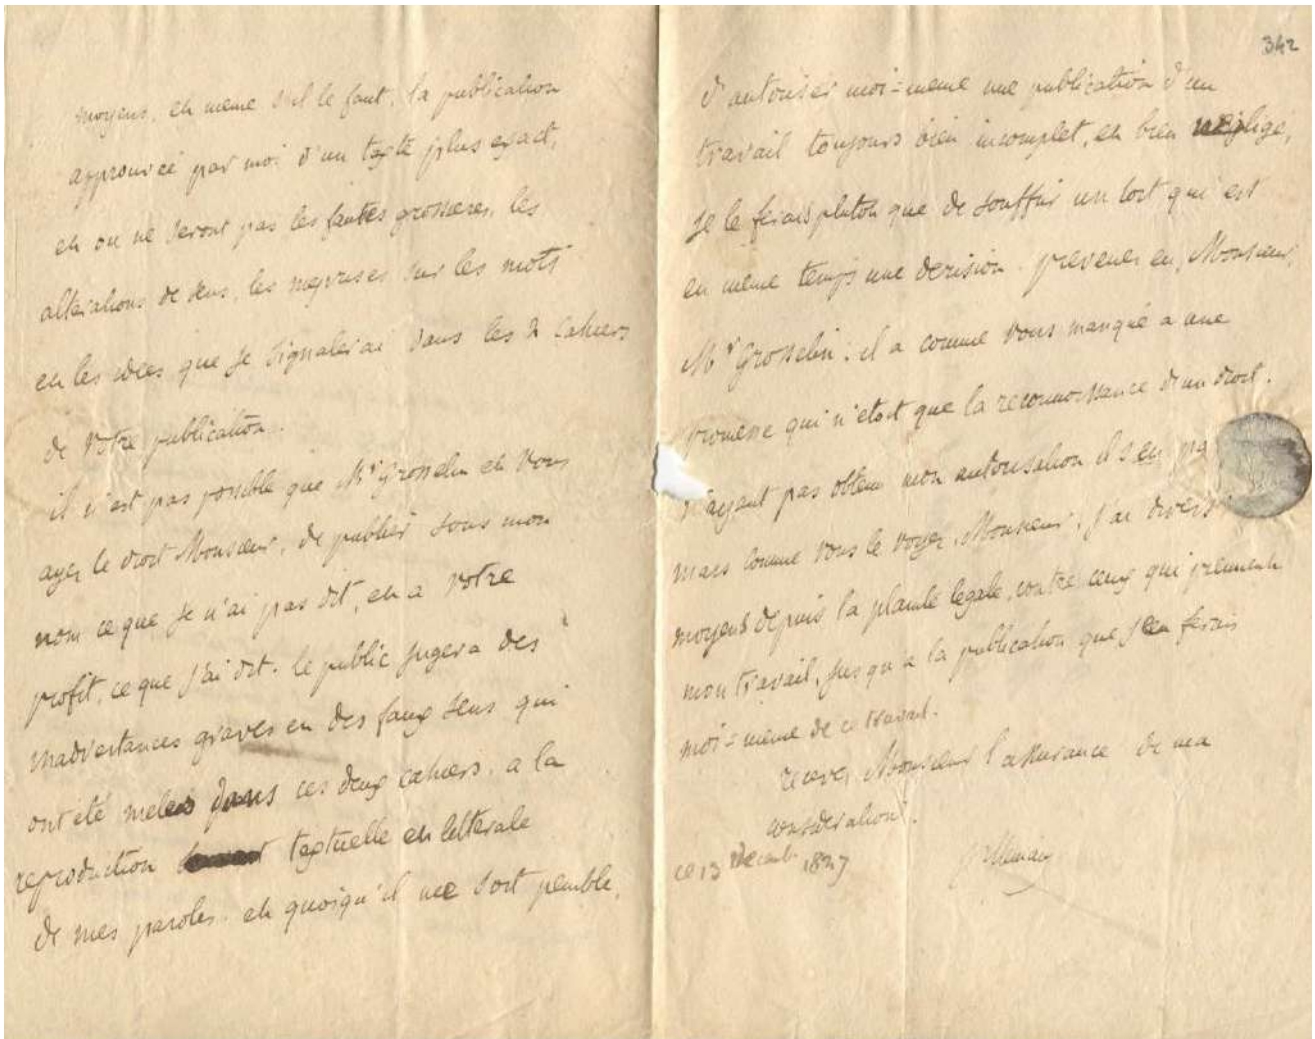 moyens, et meme s'il le faut, la publication
approuvée par moi d'un texte plus exact,
et ou ne seront pas les fautes grossieres, les
alterations de sens, les meprises sur les mots
et les idées que je signalerai dans les 2 Cahiers
de votre publication.
il n'est pas possible que Mr Grosselin et vous
ayez le droit Monsieur, de publier sous mon
nom ce que je n'ai pas dit, et a votre
profit, ce que j'ai dit. le public jugera des
inadvertances graves et des faux sens qui
ont été melés dans ces deux cahiers, a la
reproduction textuelle et litterale
de mes paroles. et quoiqu'il me soit penible,
342
d'autoriser moi=meme une publication d'un
travail toujours bien incomplet, et bien negligé,
je le ferais plutot que de souffrir un tort qui est
en même temps une derision. prevenez en, Monsieur,
Mr Grosselin; il a comme vous manqué a une
promesse qui n'etoit que la reconnoissance d'un droit.
n'ayant pas obtenu mon autorisation il s'en
mais comme vous le voyez, Monsieur, j'ai divers
moyens depuis la plainte legale, contre ceux qui prennent
mon travail, jusqu'a la publication que j'en ferais
moi=meme de ce travail.
recevez, Monsieur l'assurance de ma
consideration.
ce 13 decemb. 1827 Villemain